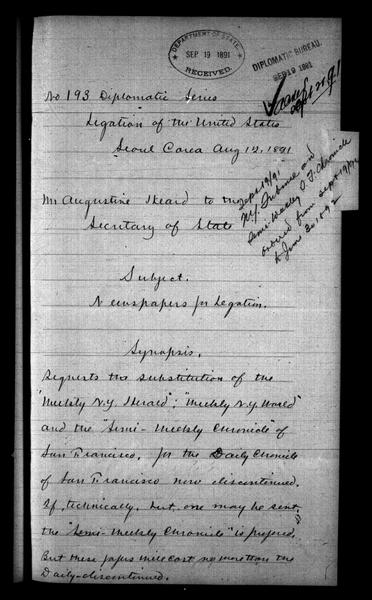 DEPARTMENT OF STATE
SEP 19 1891
RECEIVED.
DIPLOMATIC BUREAU.
SEP 19 1891
No 193 Diplomatic Series
Legation of the United States
Seoul Corea Aug 12, 1891
Mr Augustine Heard to the
Secretary of State
Sept 19/91
N.Y. Tribune and
Semi-Weekly S. F. Chronicle
ordered from Sept 19/91
to June 30 1892
Subject.
Newspapers for Legation.
Synopsis.
Requests the substitution of the
"Weekly N.Y. Herald"; "Weekly N.Y. World"
and the "Semi-Weekly Chronicle" of
San Francisco, for the Daily Chronicle
of San Francisco now discontinued.
If, technically, but one may be sent,
the "Semi-Weekly Chronicle" is prefered,
But these papers will cost no more than the
Daily-discontinued.